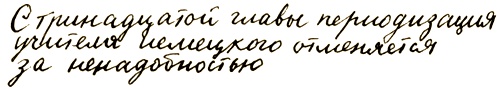 С тринадцатой главы периодизация
учителя немецкого отменяется
за ненадобностью